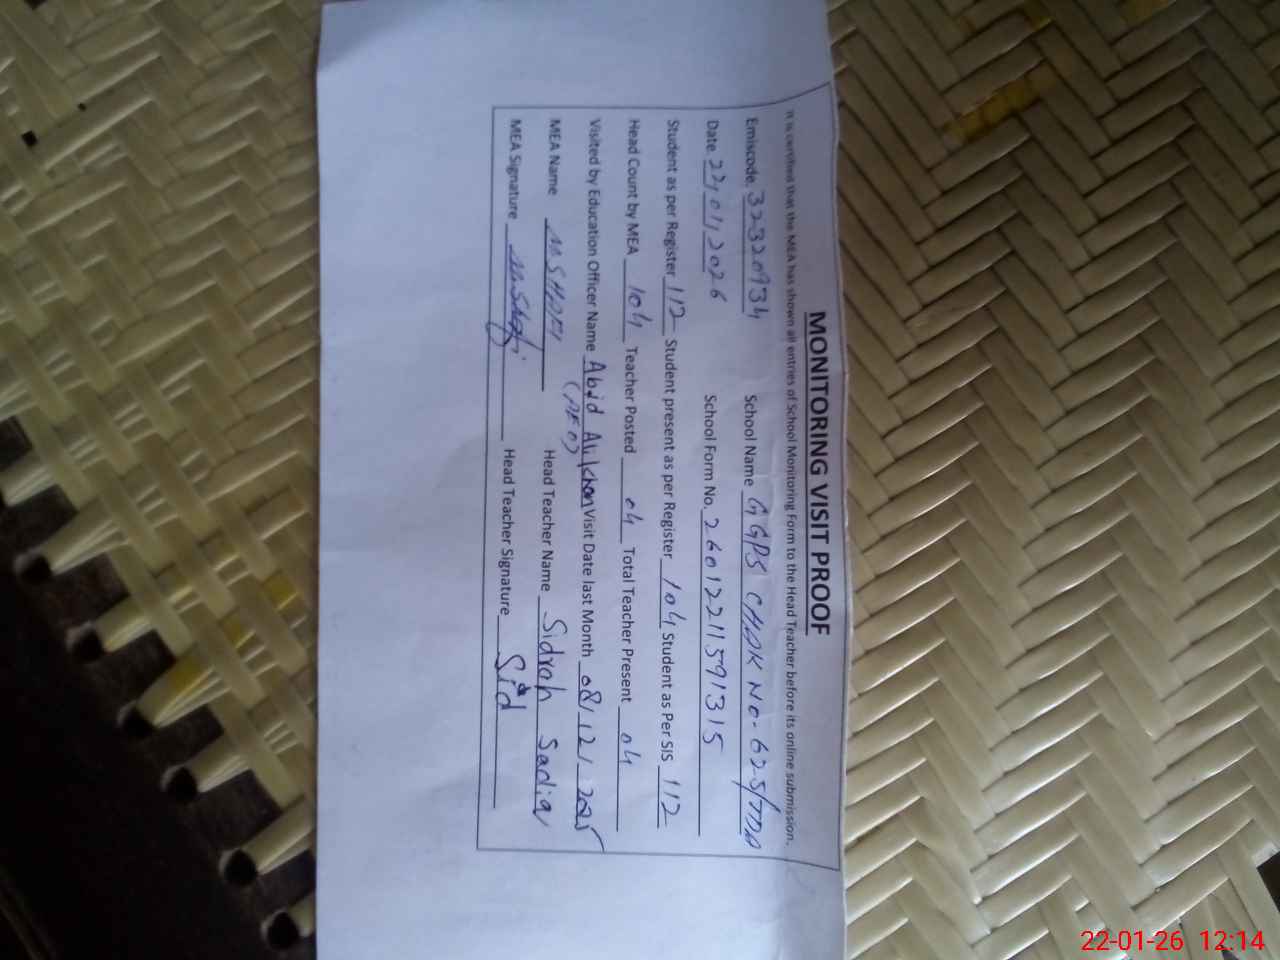 MONITORING VISIT PROOF
It is certified that the MEA has shown all entries of School Monitoring Form to the Head Teacher before its online submission.
Emiscode. 32320934 School Name GGPS CHAK NO-625/TDA
Date 22/01/2026 School Form No. 2601221159 1315
Student as per Register 112 Student present as per Register 104 Student as Per SIS 112
Head Count by MEA 104 Teacher Posted 04 Total Teacher Present 04
Visited by Education Officer Name Abid Ali Khan Visit Date last Month 08/12/2025
(AEO)
MEA Name M SHAFI Head Teacher Name Sidrah Sadia
MEA Signature M Shafi Head Teacher Signature Sid
22-01-26 12:14